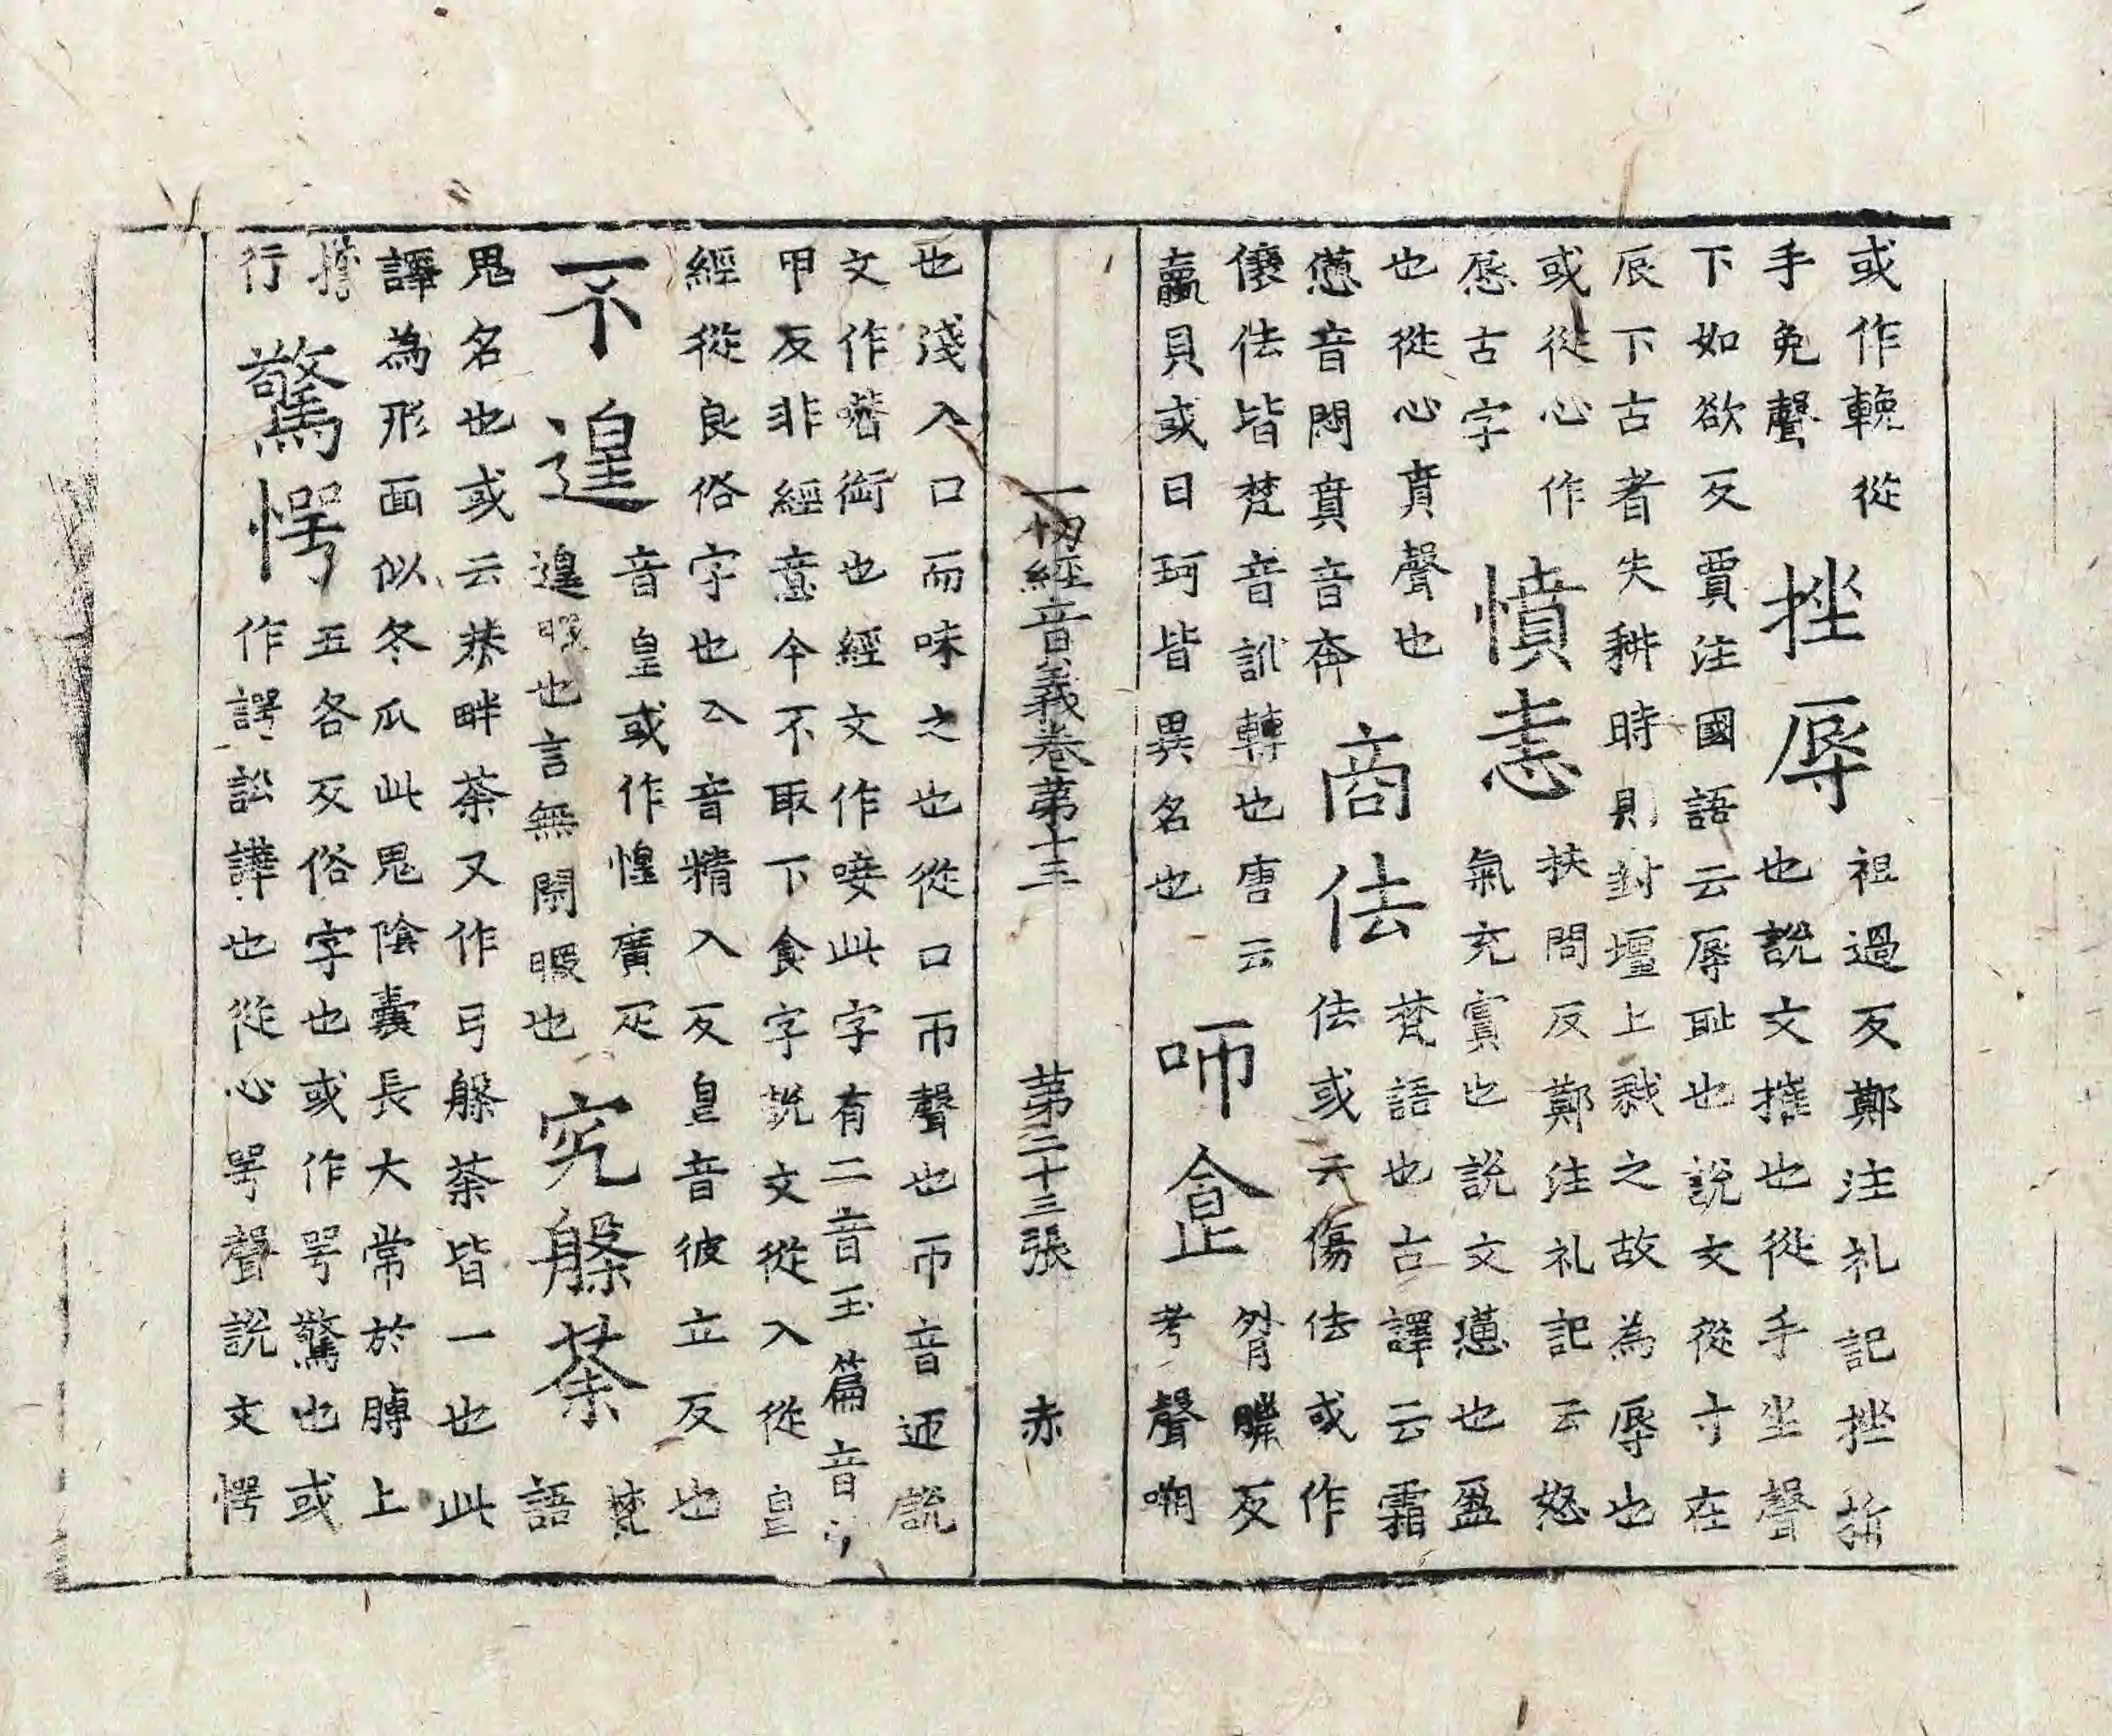 或作輓從
手免聲
挫辱
祖過反鄭注礼記挫折
也說文摧也從手坐聲
下如欲反賈注國語云辱恥也說文從寸在
辰下古者失耕時則封壃上戮之故為辱也
或從心作
㥲古字
憤恚
扶問反鄭注礼記云怒
氣充實也說文懣也盈
也從心賁聲也
懣音悶賁音奔
商佉
梵語也古譯云霜
佉或云傷佉或作
儴佉皆梵音訛轉也唐云
蠃貝或曰珂皆異名也
咂食
臘反
考聲嗍
一切經音義卷第十三 第二十三張 赤
也淺入口而味之也從口帀聲也帀音迊說
文作㗱銜也經文作唼此字有二音玉篇音子
甲反非經意今不取下食字說文從入從皀
經從良俗字也亼音精入反皀音彼立反也
不遑
音皇或作惶廣疋
遑暇也言無閑暇也
究躲荼
梵
語
鬼名也或云恭畔荼又作弓躲荼皆一也此
譯為形面似冬瓜此鬼陰囊長大常於膊上
擔
行
驚愕
五各反俗字也或作咢驚也或
作諤訟譁也從心咢聲說文愕